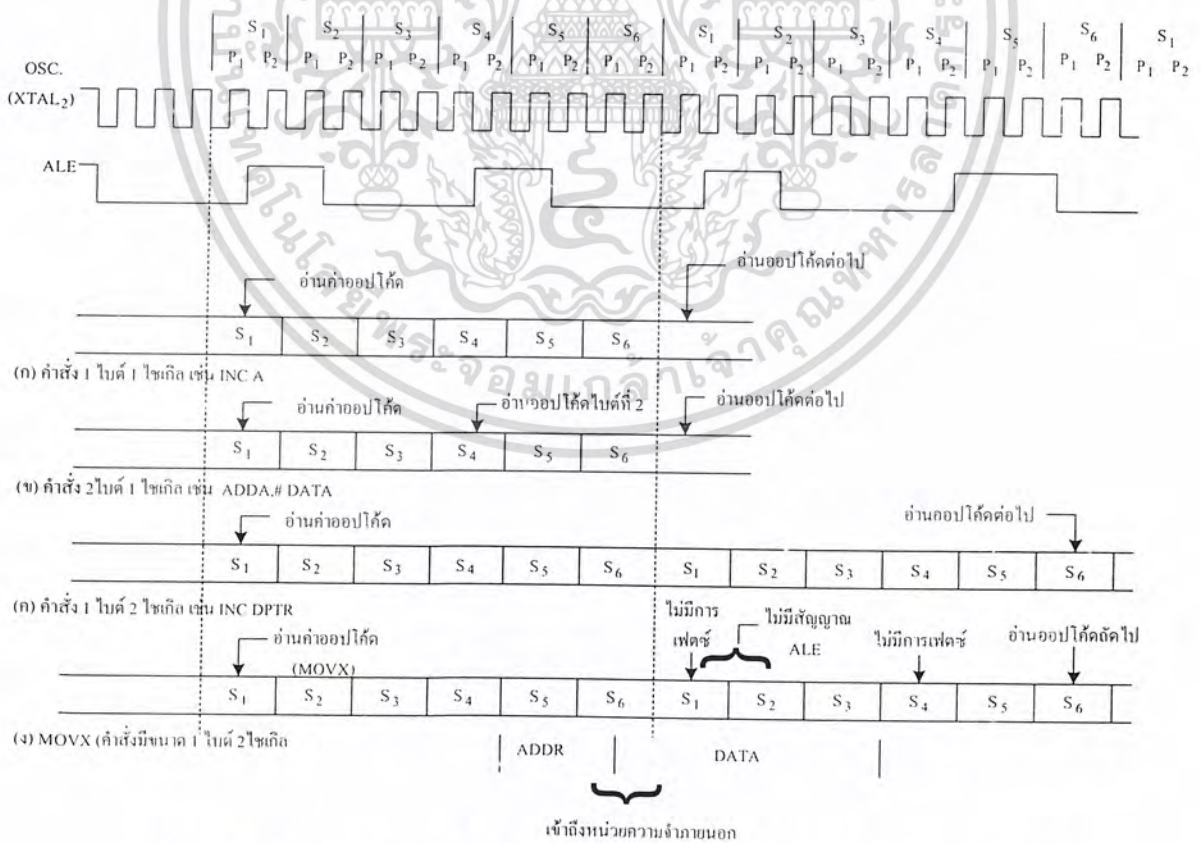 S1 S2 S3 S4 S5 S6 S1 S2 S3 S4 S5 S6 S1
P1 P2 P1 P2 P1 P2 P1 P2 P1 P2 P1 P2 P1 P2 P1 P2 P1 P2 P1 P2 P1 P2 P1 P2 P1 P2
OSC.
(XTAL2)
ALE
อ่านค่าออปโค้ด
อ่านออปโค้ดต่อไป
S1 S2 S3 S4 S5 S6
(ก) คำสั่ง 1 ไบต์ 1 ไซเกิล เช่น INC A
อ่านค่าออปโค้ด
อ่านออปโค้ดไบต์ที่ 2
อ่านออปโค้ดต่อไป
S1 S2 S3 S4 S5 S6
(ข) คำสั่ง 2ไบต์ 1 ไซเกิล เช่น ADDA,# DATA
อ่านค่าออปโค้ด
อ่านออปโค้ดต่อไป
S1 S2 S3 S4 S5 S6 S1 S2 S3 S4 S5 S6
(ค) คำสั่ง 1 ไบต์ 2 ไซเกิล เช่น INC DPTR
อ่านค่าออปโค้ด
(MOVX)
ไม่มีการ
เฟตช์
ไม่มีสัญญาณ
ALE
ไม่มีการเฟตช์
อ่านออปโค้ดถัดไป
S1 S2 S3 S4 S5 S6 S1 S2 S3 S4 S5 S6
(ง) MOVX (คำสั่งมีขนาด 1 ไบต์ 2ไซเกิล
ADDR
DATA
เข้าถึงหน่วยความจำภายนอก